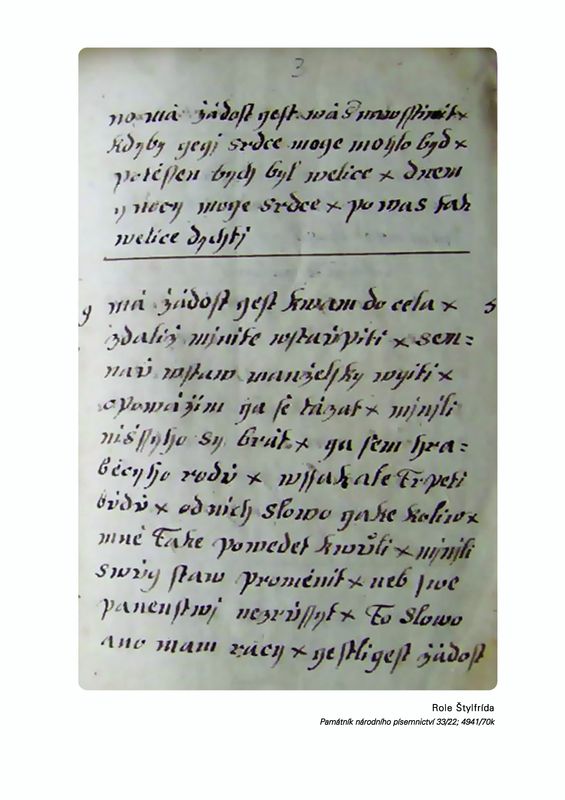 3
no má žádost gest wás nawsstiwit ×
kdyby gegj srdce moge mohlo byd ×
potěssen bych byl welice × dnem
y nocy moge srdce × po was tak
welice dychtj
9 má žádost gest kwam do cela × 5
zdaliž mjnite wstaupiti × sem=
naů wstaw manželsky wgiti ×
opowážim ga se tázat × mjnjli
nissyho sy brát × ga sem hra=
běcyho rodů × wssak ale trpeti
bůdů × od nich slowo gake koliw ×
mně take powedet kwůli × mjnjli
swůg staw proměnit × neb swe
panenstwj nezrůssyt × to slowo
ano mam racy × gestli gest žádost
Role Štylfrída
Památník národního písemnictví 33/22; 4941/70k